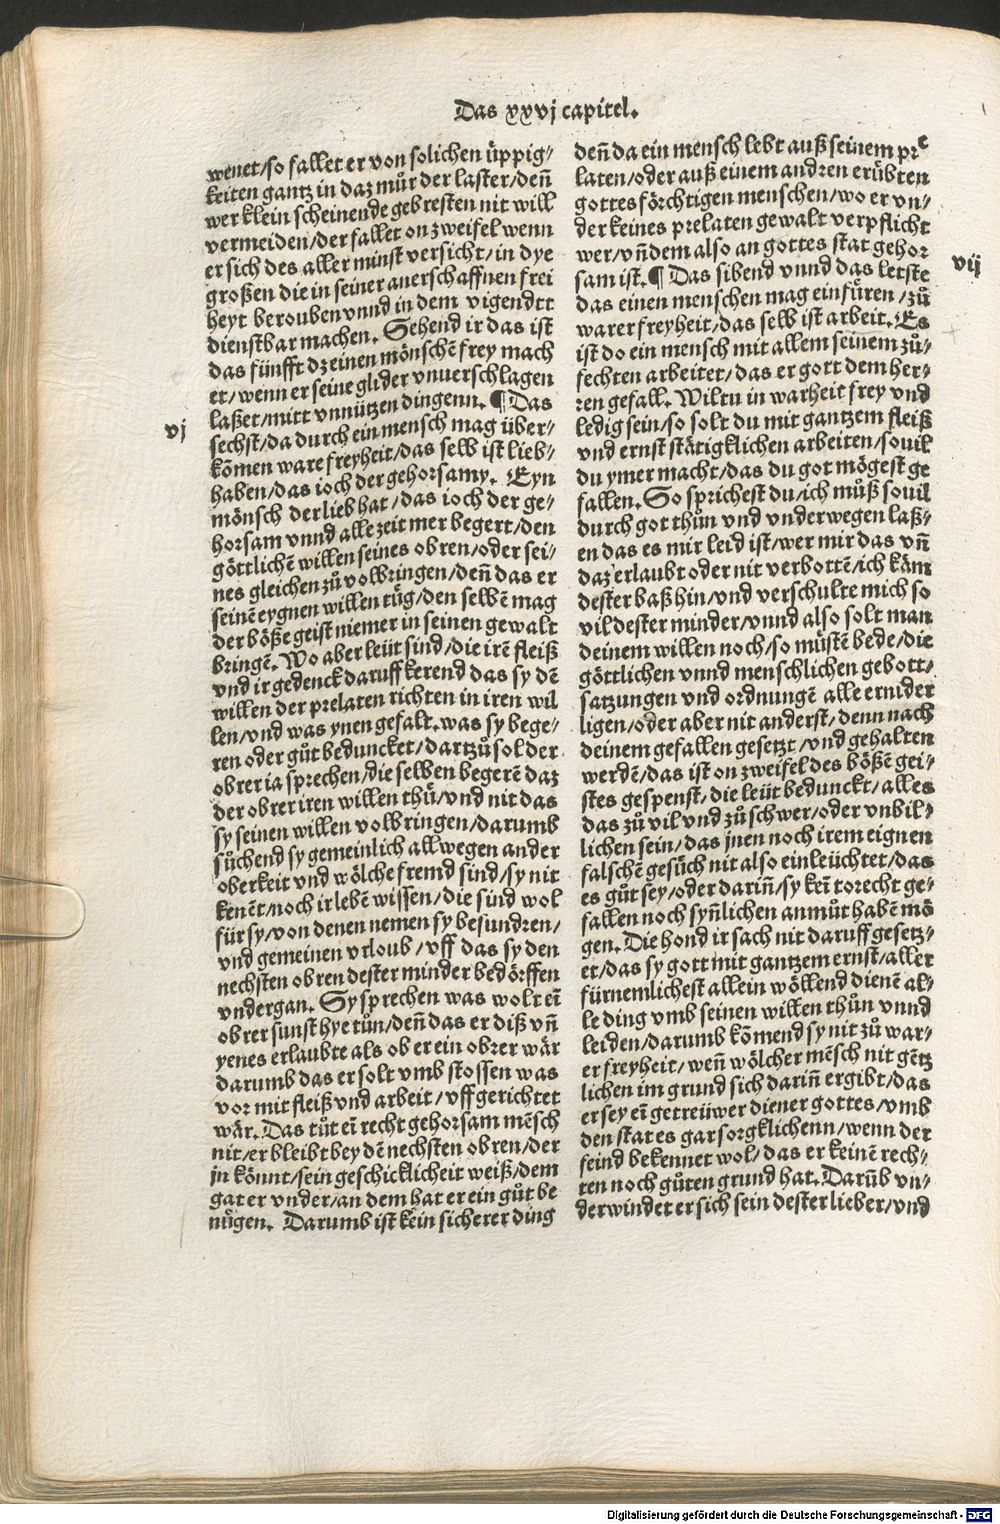 Das xxvj capitel.
wenet/so fallet er von solichen üppig-
keiten gantz in daz můr der laster/deñ
wer klein scheinende gebresten nit will
vermeiden/der fallet on zweifel wenn
er sich des aller minst versicht/in dye
großen die in seiner anerschaffnen frei
heyt berouben vnnd in dem vigendtt
dienstbar machen. Sehend ir das ist
das fünfft dz einen mönschē frey mach
et/wenn er seine glider vnuerschlagen
laßet/mitt vnnützen dingenn. ¶ Das
vj
sechst/da durch ein mensch mag über-
kōmen ware freyheit/das selb ist lieb-
haben/das ioch der gehorsamy. Eyn
mönsch der lieb hat/das ioch der ge-
horsam vnnd alle zeit mer begert/den
göttlichē willen seines obren/oder sei-
nes gleichen zů volbringen/deñ das er
seinē eygnen willen tüg/den selbē mag
der böße geist niemer in seinen gewalt
bringē. Wo aber leüt sind/die irē fleiß
vnd ir gedenck daruff kerend das sy dē
willen der prelaten richten in iren wil
len/vnd was ynen gefalt. was sy bege-
ren oder gůt beduncket/dartzů sol der
obrer ia sprechen/die selben begerē daz
der obrer iren willen thü/vnd nit das
sy seinen willen volbringen/darumb
sůchend sy gemeinlich allwegen ander
oberkeit vnd wölche fremd sind/sy nit
kenēt/noch ir lebē wissen/die sind wol
für sy/von denen nemen sy besundren/
vnd gemeinen vrloub/vff das sy den
nechsten obren dester minder bedörffen
vndergan. Sy sprechen was wolt eī
obrer sunst hye tůn/deñ das er diß vñ
yenes erlaubte als ob er ein obrer wär
darumb das er solt vmb stossen was
vor mit fleiß vnd arbeit/vffgerichtet
wär. Das tůt eī recht gehorsam mēsch
nit/er bleibt bey dē nechsten obren/der
jn könnt/sein geschicklicheit weiß/dem
gat er vnder/an dem hat er ein gůt be
nügen. Darumb ist kein sicherer ding
deñ da ein mensch lebt auß seinem pre
laten/oder auß einem andren erübten
gottes förchtigen menschen/wo er vn-
der keines prelaten gewalt verpflicht
wer/vñ dem also an gottes stat gehor
sam ist. ¶ Das sibend vnnd das letste
vij
das einen menschen mag einfüren/zů
warer freyheit/das selb ist arbeit. Es
ist do ein mensch mit allem seinem zů-
fechten arbeitet/das er gott dem her-
ren gefall. Wiltu in warheit frey vnd
ledig sein/so solt du mit gantzem fleiß
vnd ernst stätigklichen arbeiten/souil
du ymer macht/das du got mögest ge
fallen. So sprichest du/ich můß souil
durch got thůn vnd vnderwegen laß-
en das es mir leid ist/wer mir das vñ
daz erlaubt oder nit verbottē/ich käm
dester baß hin/vnd verschulte mich so
vil dester minder/vnnd also solt man
deinem willen noch/so müstē bede/die
göttlichen vnnd menschlichen gebott/
satzungen vnd ordnungē alle ernider
ligen/oder aber nit anderst/denn nach
deinem gefallen gesetzt/vnd gehalten
werdē/das ist on zweifel des bößē gei-
stes gespenst/die leüt bedunckt/alles
das zů vil vnd zů schwer/oder vnbil-
lichen sein/das jnen noch irem eignen
falschē gesůch nit also einleüchtet/das
es gůt sey/oder dariñ/sy keī torecht ge-
fallen noch syñlichen anmůt habē mö
gen. Die hond ir sach nit daruff gesetz-
et/das sy gott mit gantzem ernst/aller
fürnemlichest allein wöllend dienē al-
le ding vmb seinen willen thůn vnnd
leiden/darumb kōmend sy nit zů war-
er freyheit/weñ wölcher mēsch nit gētz
lichen im grund sich dariñ ergibt/das
er sey eī getreüwer diener gottes/vmb
den stat es gar sorgklichenn/wenn der
feind bekennet wol/das er keinē rech-
ten noch gůten grund hat. Darūb vn-
derwindet er sich sein dester lieber/vnd
Digitalisierung gefördert durch die Deutsche Forschungsgemeinschaft - DFG